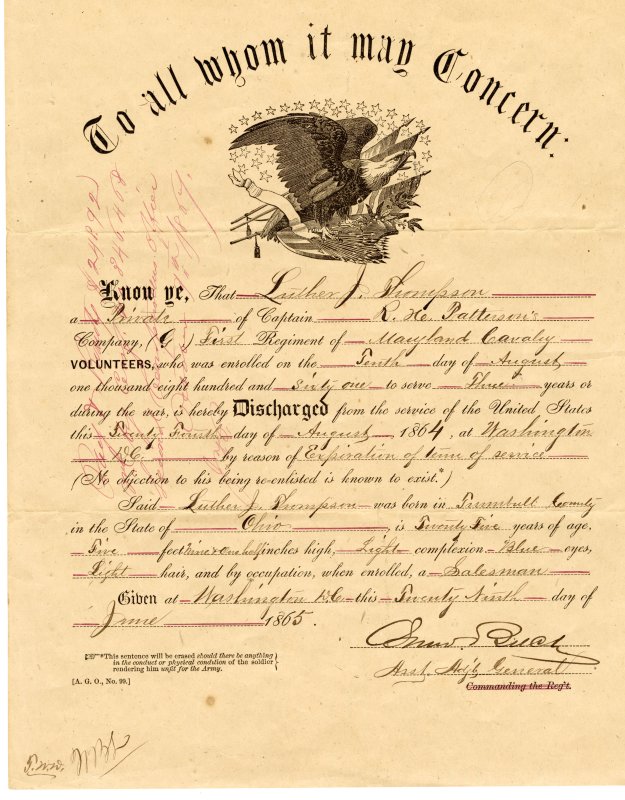 To all whom it may Concern:
Know ye, That Luther J. Thompson
a Private of Captain R. H. Patterson's
Company, (G) First Regiment of Maryland Cavalry
VOLUNTEERS, who was enrolled on the Tenth day of August
one thousand eight hundred and sixty one to serve Three years or
during the war, is hereby Discharged from the service of the United States
this Twenty Fourth day of August, 1864, at Washington
D.C. by reason of Expiration of term of service
(No objection to his being re-enlisted is known to exist.*)
Said Luther J. Thompson was born in Trumbull County
in the State of Ohio, is Twenty Five years of age,
Five feet nine & one half inches high, Light complexion, Blue eyes,
Light hair, and by occupation, when enrolled, a Salesman
Given at Washington D.C. this Twenty Ninth day of
June 1865.
Asst. Adjt. General
Commanding the Reg't.
*This sentence will be erased should there be anything
in the conduct or physical condition of the soldier
rendering him unfit for the Army.
[A. G. O., No. 99.]